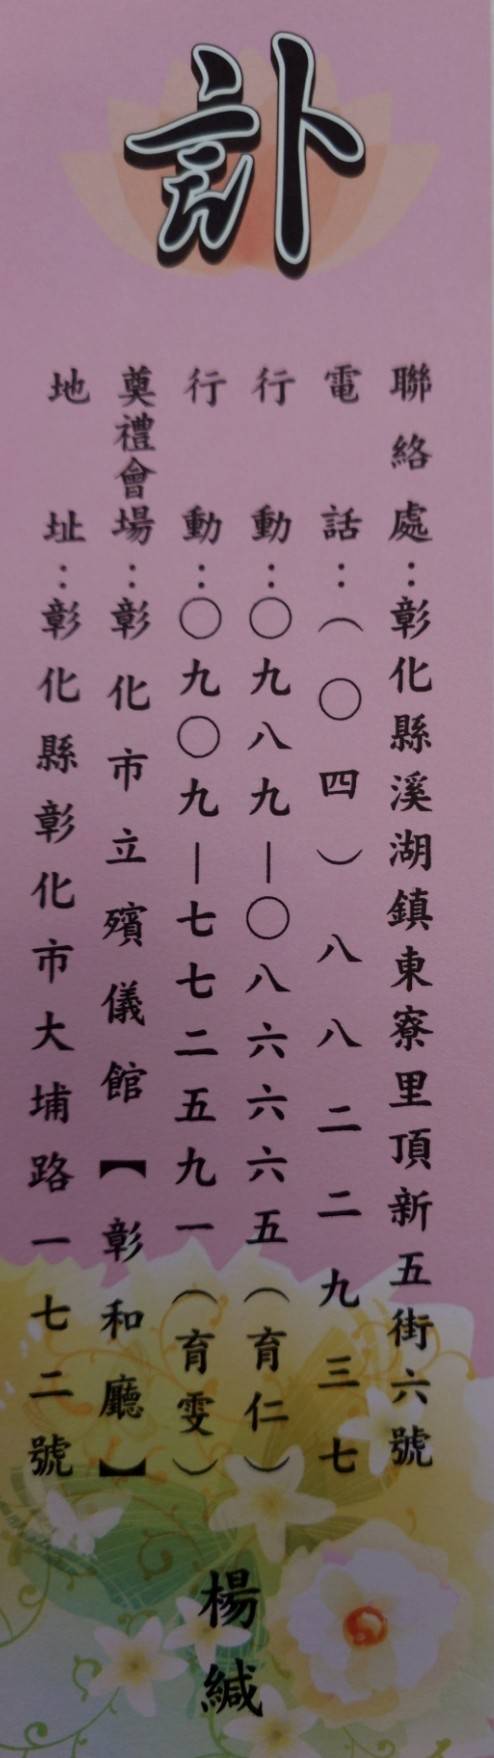 訃
聯絡處：彰化縣溪湖鎮東寮里頂新五街六號
電話：（〇四）八八二二九三七
行動：〇九八九－〇八六六六五（育仁）
行動：〇九〇九－七七二五九一（育雯）
奠禮會場：彰化市立殯儀館【彰和廳】
地址：彰化縣彰化市大埔路一七二號
楊緘